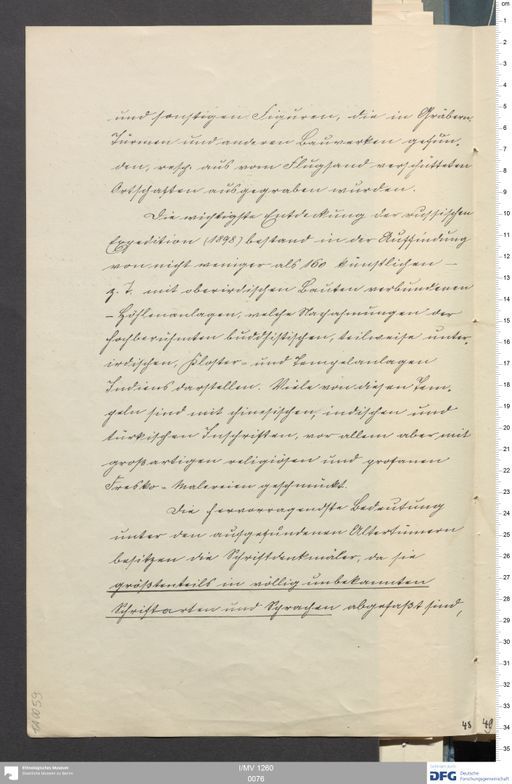 und sonstigen Figuren, die in Gräbern,
Türmen und anderen Bauwerken gefun-
den, resp. aus vom Flugsand verschütteten
Ortschaften ausgegraben wurden.
Die wichtigste Entdeckung der russischen
Expedition (1898) bestand in der Auffindung
von nicht weniger als 160 künstlichen –
z. T. mit oberirdischen Bauten verbundenen
– Höhlenanlagen, welche Nachahmungen der
hochberühmten buddhistischen, teilweise unter-
irdischen, Kloster- und Tempelanlagen
Indiens darstellen. Viele von diesen Tem-
peln sind mit chinesischen, indischen und
türkischen Inschriften, vor allem aber mit
großartigen religiösen und profanen
Fresko-Malereien geschmückt.
Die hervorragendste Bedeutung
unter den aufgefundenen Altertümern
besitzen die Schriftdenkmäler, da sie
größtenteils in völlig unbekannten
Schriftarten und Sprachen abgefaßt sind,
48 49
Ethnologisches Museum
Staatliche Museen zu Berlin
I/MV 1260
0076
DFG Deutsche
Forschungsgemeinschaft
cm
1
2
3
4
5
6
7
8
9
10
11
12
13
14
15
16
17
18
19
20
21
22
23
24
25
26
27
28
29
30
31
32
33
34
35